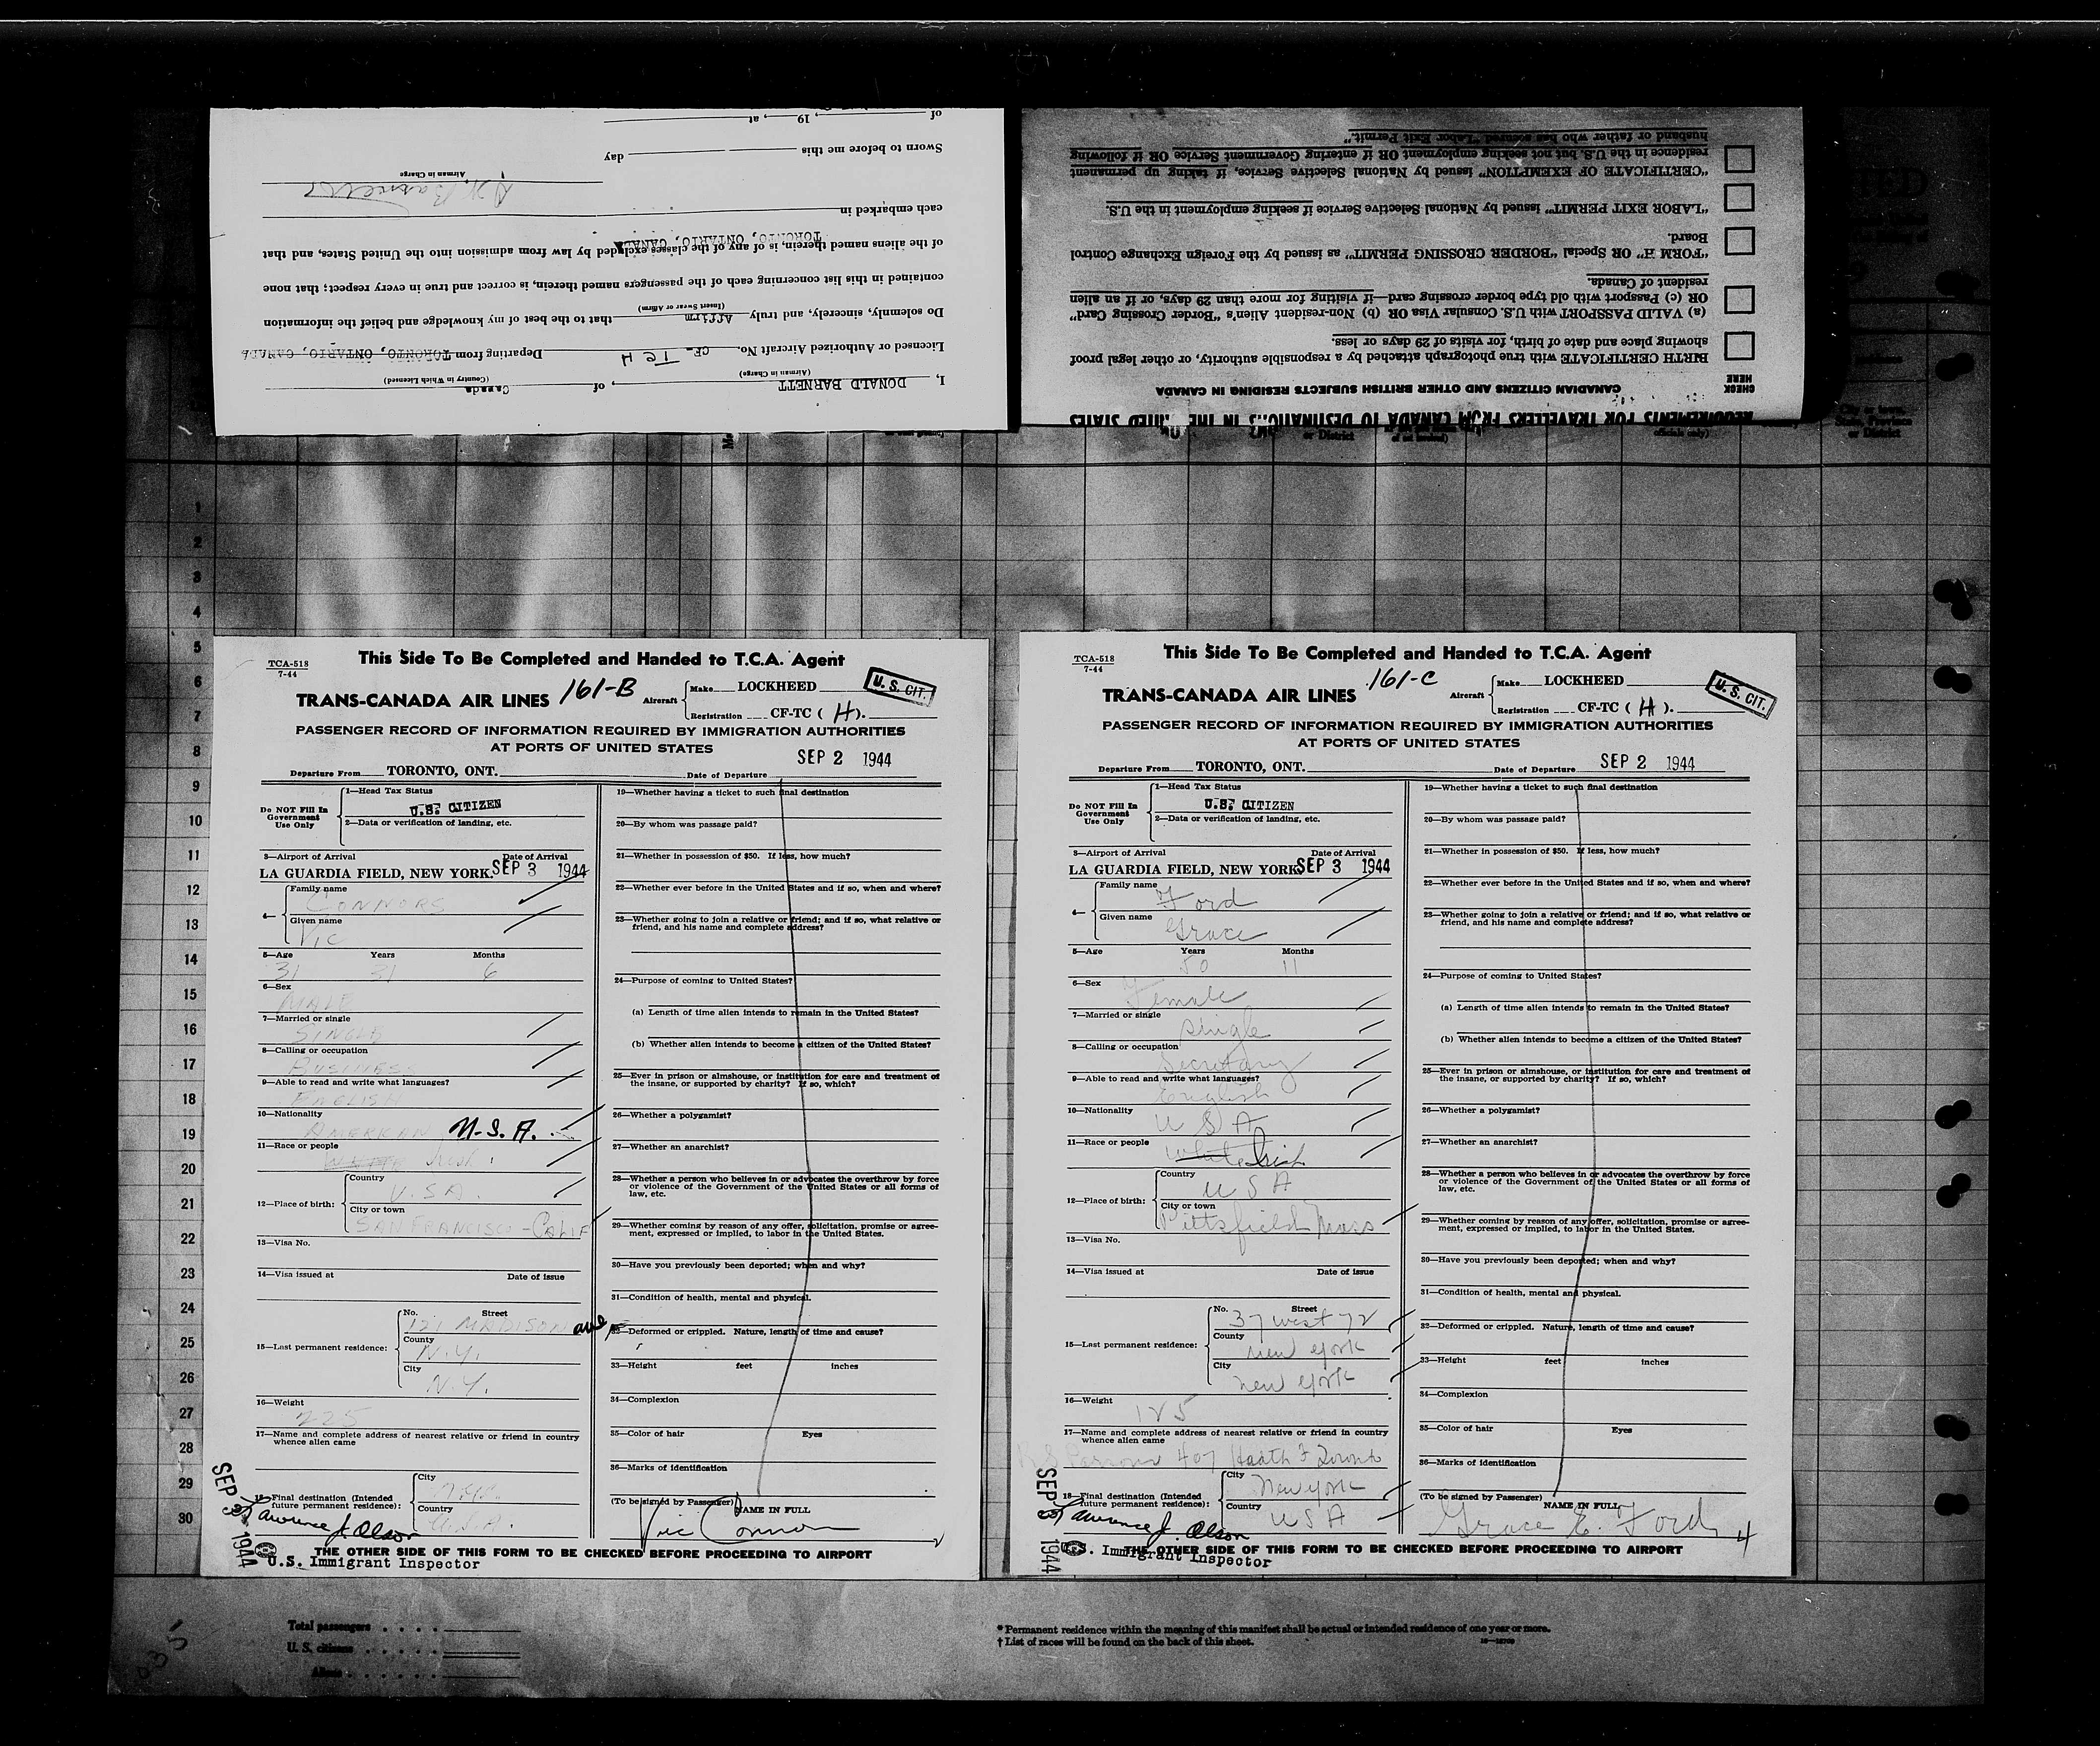 of , 19 , at
Sworn to before me this day
Airman in Charge
each embarked in
TORONTO, ONTARIO, CANADA
of the aliens named therein, is of any of the classes excluded by law from admission into the United States, and that
contained in this list concerning each of the passengers named therein, is correct and true in every respect; that none
(Insert Swear or Affirm)
Do solemnly, sincerely, and truly Affirm that to the best of my knowledge and belief the information
Licensed or Authorized Aircraft No. CF- TCH Departing from TORONTO, ONTARIO, CANADA
(Airman in Charge) (Country in Which Licensed)
I, DONALD BARNETT, of Canada
husband or father who has secured "Labor Exit Permit."
residence in the U.S. but not seeking employment OR if entering Government Service OR if following
"CERTIFICATE OF EXEMPTION" issued by National Selective Service, if taking up permanent
"LABOR EXIT PERMIT" issued by National Selective Service if seeking employment in the U.S.
Board.
"FORM H" OR Special "BORDER CROSSING PERMIT" as issued by the Foreign Exchange Control
resident of Canada.
OR (c) Passport with old type border crossing card—if visiting for more than 29 days, or if an alien
(a) VALID PASSPORT with U.S. Consular Visa OR (b) Non-resident Alien's "Border Crossing Card"
showing place and date of birth, for visits of 29 days or less.
BIRTH CERTIFICATE with true photograph attached by a responsible authority, or other legal proof
CHECK HERE
CANADIAN CITIZENS AND OTHER BRITISH SUBJECTS RESIDING IN CANADA
REQUIREMENTS FOR TRAVELLERS FROM CANADA TO DESTINATIONS IN THE UNITED STATES
1
2
3
4
5
6
7
8
9
10
11
12
13
14
15
16
17
18
19
20
21
22
23
24
25
26
27
28
29
30
TCA-518
7-44
This Side To Be Completed and Handed to T.C.A. Agent
TRANS-CANADA AIR LINES 161-B
Aircraft Make LOCKHEED
Registration CF-TC ( H ).
U. S. CIT.
PASSENGER RECORD OF INFORMATION REQUIRED BY IMMIGRATION AUTHORITIES
AT PORTS OF UNITED STATES
SEP 2 1944
Departure From TORONTO, ONT. Date of Departure
Do NOT Fill In Government Use Only
1—Head Tax Status
U.S. CITIZEN
2—Data or verification of landing, etc.
3—Airport of Arrival Date of Arrival
LA GUARDIA FIELD, NEW YORK. SEP 3 1944
4— Family name
CONNORS
Given name
VIC
5—Age Years Months
31 31 6
6—Sex
MALE
7—Married or single
SINGLE
8—Calling or occupation
BUSINESS
9—Able to read and write what languages?
ENGLISH
10—Nationality
AMERICAN U.S.A.
11—Race or people
WHITE Irish
12—Place of birth: Country
U.S.A.
City or town
SAN FRANCISCO - CALIF
13—Visa No.
14—Visa issued at Date of issue
15—Last permanent residence: No. Street
121 MADISON ave
County
N.Y.
City
N.Y.
16—Weight
225
17—Name and complete address of nearest relative or friend in country
whence alien came
18—Final destination (Intended
future permanent residence): City
N.Y.C.
Country
U.S.A.
19—Whether having a ticket to such final destination
20—By whom was passage paid?
21—Whether in possession of $50. If less, how much?
22—Whether ever before in the United States and if so, when and where?
23—Whether going to join a relative or friend; and if so, what relative or
friend, and his name and complete address?
24—Purpose of coming to United States?
(a) Length of time alien intends to remain in the United States?
(b) Whether alien intends to become a citizen of the United States?
25—Ever in prison or almshouse, or institution for care and treatment of
the insane, or supported by charity? If so, which?
26—Whether a polygamist?
27—Whether an anarchist?
28—Whether a person who believes in or advocates the overthrow by force
or violence of the Government of the United States or all forms of
law, etc.
29—Whether coming by reason of any offer, solicitation, promise or agree-
ment, expressed or implied, to labor in the United States.
30—Have you previously been deported; when and why?
31—Condition of health, mental and physical.
32—Deformed or crippled. Nature, length of time and cause?
33—Height feet inches
34—Complexion
35—Color of hair Eyes
36—Marks of identification
(To be signed by Passenger) NAME IN FULL
Vic Connors
SEP 3 1944
Lawrence J. Olson
THE OTHER SIDE OF THIS FORM TO BE CHECKED BEFORE PROCEEDING TO AIRPORT
U.S. Immigrant Inspector
TCA-518
7-44
This Side To Be Completed and Handed to T.C.A. Agent
TRANS-CANADA AIR LINES 161-C
Aircraft Make LOCKHEED
Registration CF-TC ( H ).
U. S. CIT.
PASSENGER RECORD OF INFORMATION REQUIRED BY IMMIGRATION AUTHORITIES
AT PORTS OF UNITED STATES
SEP 2 1944
Departure From TORONTO, ONT. Date of Departure
Do NOT Fill In Government Use Only
1—Head Tax Status
U.S. CITIZEN
2—Data or verification of landing, etc.
3—Airport of Arrival Date of Arrival
LA GUARDIA FIELD, NEW YORK SEP 3 1944
4— Family name
Ford
Given name
Grace
5—Age Years Months
50 11
6—Sex
Female
7—Married or single
Single
8—Calling or occupation
Secretary
9—Able to read and write what languages?
English
10—Nationality
U S A
11—Race or people
White Irish
12—Place of birth: Country
U S A
City or town
Pittsfield Mass
13—Visa No.
14—Visa issued at Date of issue
15—Last permanent residence: No. Street
37 West 72
County
New York
City
New York
16—Weight
125
17—Name and complete address of nearest relative or friend in country
whence alien came
407 Heath Toronto
18—Final destination (Intended
future permanent residence): City
New York
Country
U S A
19—Whether having a ticket to such final destination
20—By whom was passage paid?
21—Whether in possession of $50. If less, how much?
22—Whether ever before in the United States and if so, when and where?
23—Whether going to join a relative or friend; and if so, what relative or
friend, and his name and complete address?
24—Purpose of coming to United States?
(a) Length of time alien intends to remain in the United States?
(b) Whether alien intends to become a citizen of the United States?
25—Ever in prison or almshouse, or institution for care and treatment of
the insane, or supported by charity? If so, which?
26—Whether a polygamist?
27—Whether an anarchist?
28—Whether a person who believes in or advocates the overthrow by force
or violence of the Government of the United States or all forms of
law, etc.
29—Whether coming by reason of any offer, solicitation, promise or agree-
ment, expressed or implied, to labor in the United States.
30—Have you previously been deported; when and why?
31—Condition of health, mental and physical.
32—Deformed or crippled. Nature, length of time and cause?
33—Height feet inches
34—Complexion
35—Color of hair Eyes
36—Marks of identification
(To be signed by Passenger) NAME IN FULL
Grace E. Ford
SEP 3 1944
Lawrence J. Olson
THE OTHER SIDE OF THIS FORM TO BE CHECKED BEFORE PROCEEDING TO AIRPORT
U.S. Immigrant Inspector
Total passengers
U. S. citizens
Aliens
* Permanent residence within the meaning of this manifest shall be actual or intended residence of one year or more.
† List of races will be found on the back of this sheet.